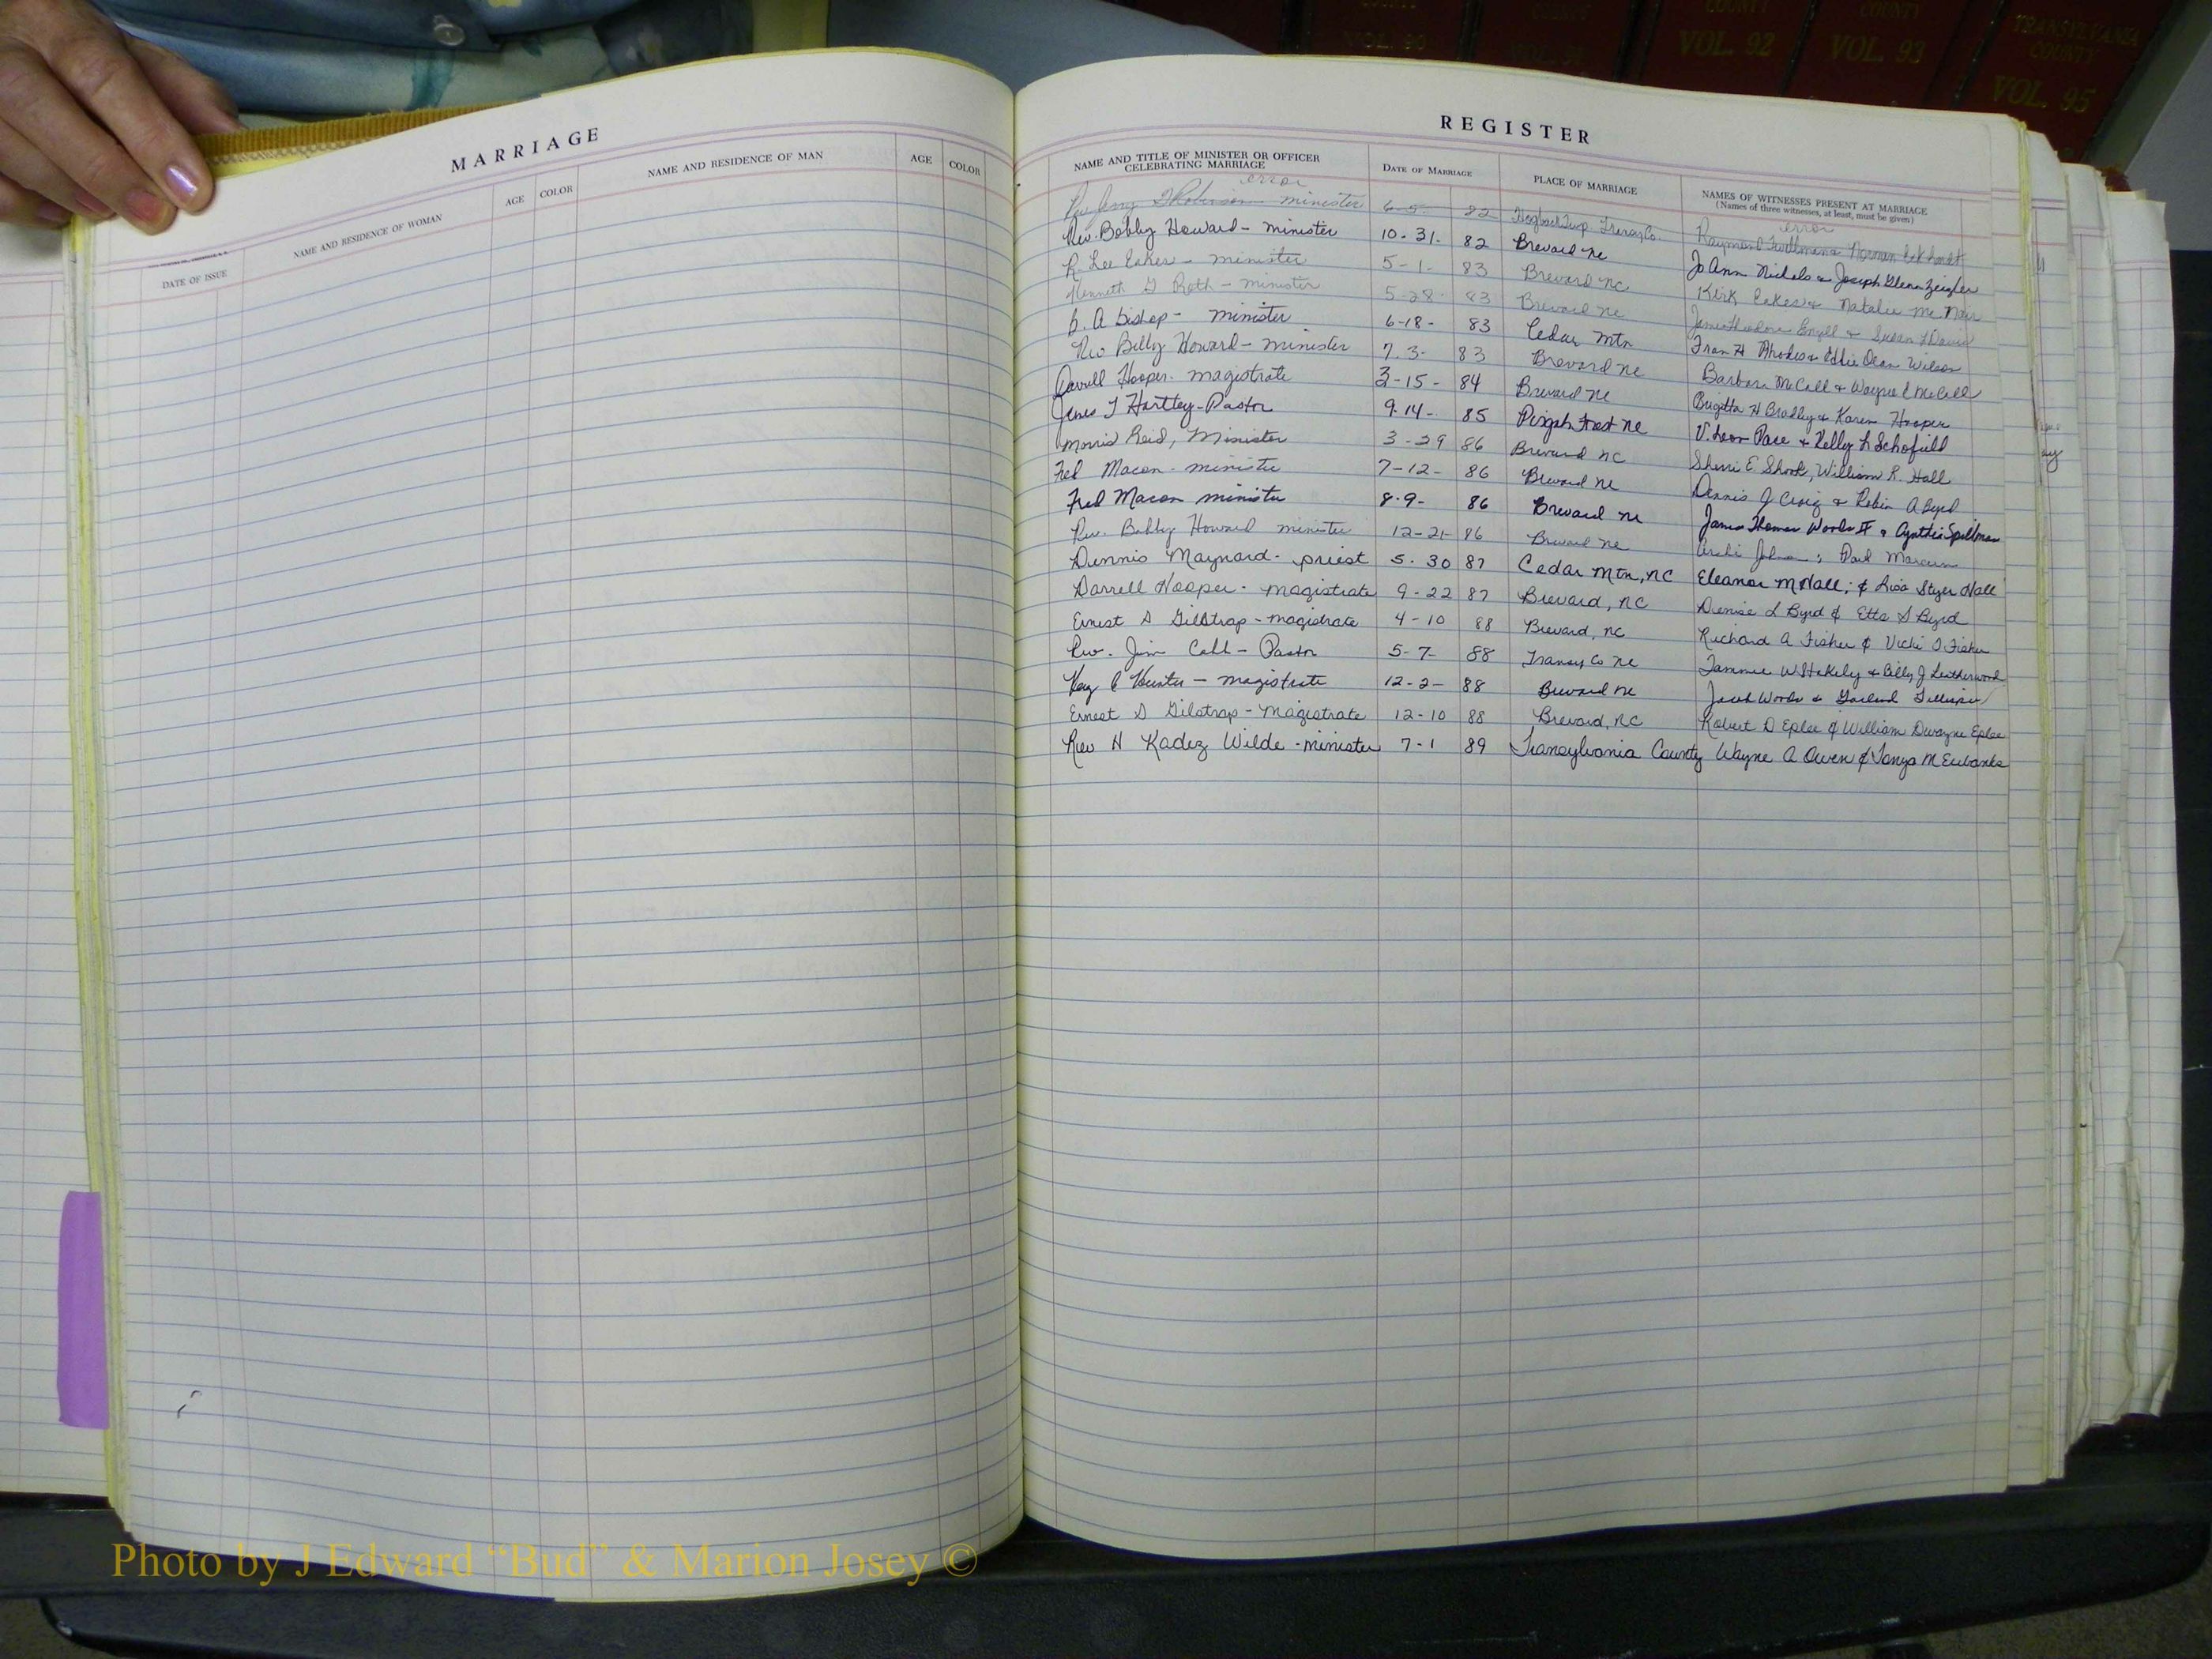 COUNTY
VOL. 90
COUNTY
COUNTY
VOL. 92
COUNTY
VOL. 93
TRANSYLVANIA
COUNTY
VOL. 95
MARRIAGE
DATE OF ISSUE
NAME AND RESIDENCE OF WOMAN
AGE
COLOR
NAME AND RESIDENCE OF MAN
AGE
COLOR
REGISTER
NAME AND TITLE OF MINISTER OR OFFICER
CELEBRATING MARRIAGE
DATE OF MARRIAGE
PLACE OF MARRIAGE
NAMES OF WITNESSES PRESENT AT MARRIAGE
(Names of three witnesses, at least, must be given)
error error
Rev Jerry Robinson minister 6-5- 82 Hogback Twp Transy Co. Raymond Norman
Rev. Bobby Howard - minister 10-31- 82 Brevard NC JoAnn Nichols & Joseph Glenn Zeigler
R. Lee Eakes - minister 5-1- 83 Brevard NC Kirk Eakes & Natalie McNair
Kenneth G Roth - minister 5-28- 83 Brevard NC James Theodore & Susan L Davis
B. A Bishop - minister 6-18- 83 Cedar Mtn Fran H Rhodes & Eddie Dean Wilson
Rev Billy Howard - minister 7-3- 83 Brevard NC Barbara McCall & Wayne E McCall
Darrell Hooper - magistrate 3-15- 84 Brevard NC Brigitta H Bradley & Karen Hooper
James T Hartley - Pastor 9-14- 85 Pisgah Forest NC V. Leon Pace & Kelly L Schofield
Morris Reid, Minister 3-29 86 Brevard NC Sherri E. Shook, William R. Hall
Fred Macon - minister 7-12- 86 Brevard NC Dennis J Craig & Robin A Byrd
Fred Macon minister 8-9- 86 Brevard NC James Thomas Woods IV & Cynthia Spellman
Rev. Bobby Howard minister 12-21- 86 Brevard NC
Dennis Maynard - priest 5-30 87 Cedar Mtn, NC Eleanor M Hall; & Lisa Styer Hall
Darrell Hooper - magistrate 9-22 87 Brevard, NC Denise L Byrd & Etta S Byrd
Ernest D Gilstrap - magistrate 4-10 88 Brevard, NC Richard A Fisher & Vicki D Fisher
Rev. Jim Cobb - Pastor 5-7- 88 Transy Co NC Tammie W Stakely & Billy J Leatherwood
Kay C Hunter - magistrate 12-2- 88 Brevard NC Jacob Woods & Garland Gillespie
Ernest D Gilstrap - Magistrate 12-10 88 Brevard, NC Robert D Eplee & William Dwayne Eplee
Rev H Kadez Wilde - minister 7-1 89 Transylvania County Wayne A Owen & Tanya M Eubanks
Photo by J Edward “Bud” & Marion Josey ©